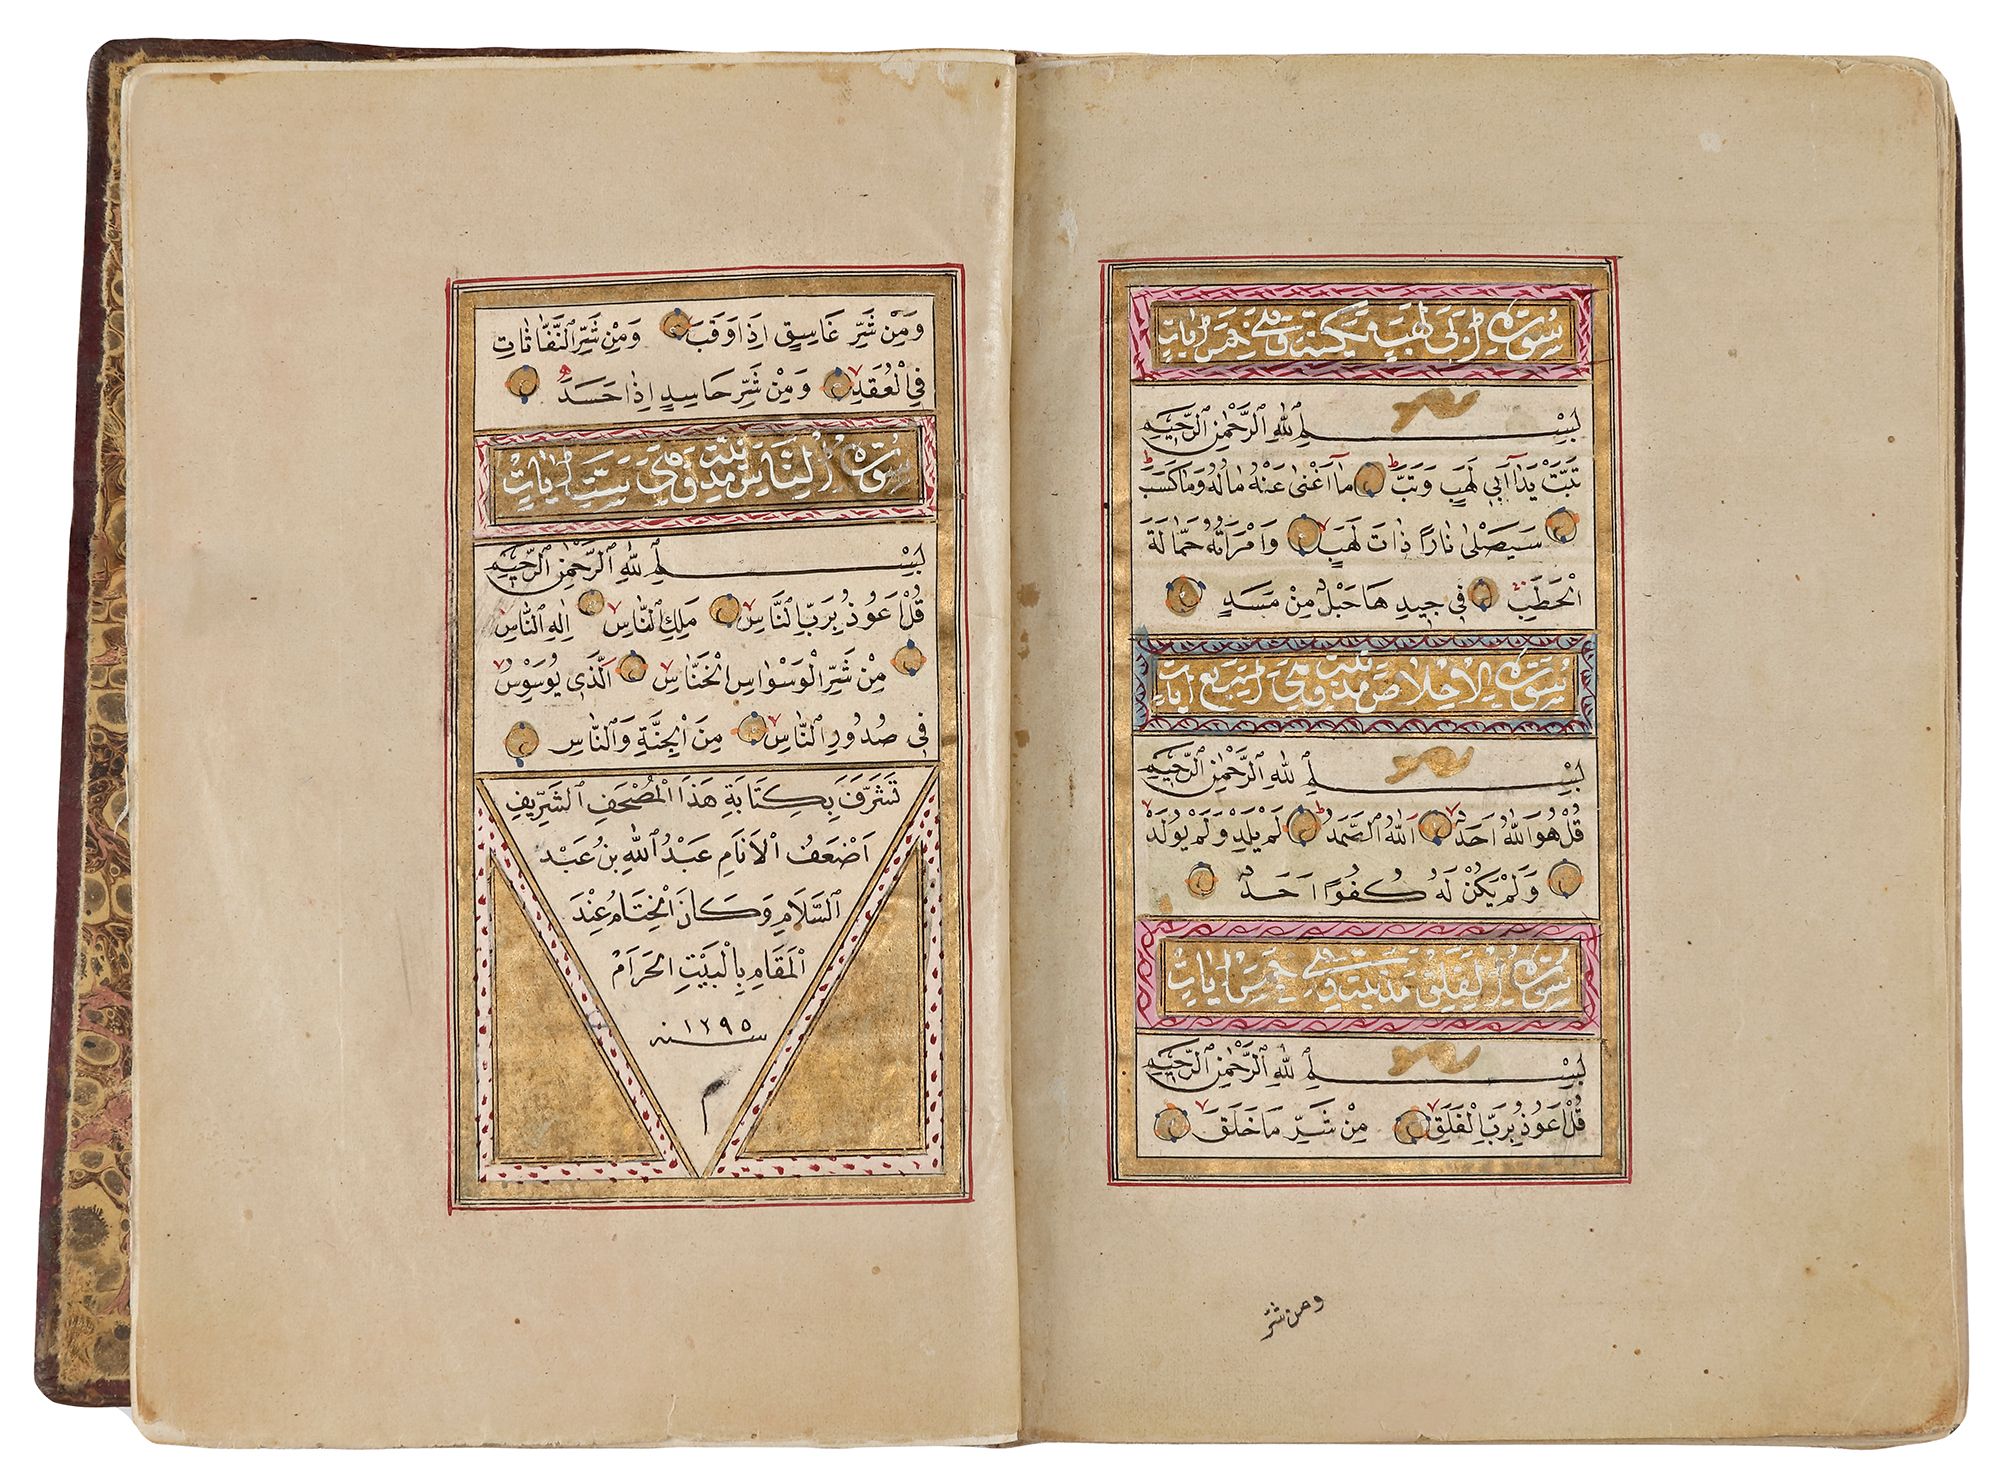 سُورَةُ أَبِي لَهَبٍ مَكِّيَّةٌ وَهِيَ خَمْسُ اٰيَاتٍ
بِسْمِ اللّٰهِ الرَّحْمٰنِ الرَّحِيمِ
تَبَّتْ يَدَٓا اَبِي لَهَبٍ وَتَبَّ مَٓا اَغْنٰى عَنْهُ مَالُهُ وَمَا كَسَبَ
سَيَصْلٰى نَارًا ذَاتَ لَهَبٍ وَامْرَاَتُهُ حَمَّالَةَ
الْحَطَبِ فِي جِيدِهَا حَبْلٌ مِنْ مَسَدٍ
سُورَةُ الْاِخْلَاصِ مَدَنِيَّةٌ وَهِيَ اَرْبَعُ اٰيَاتٍ
بِسْمِ اللّٰهِ الرَّحْمٰنِ الرَّحِيمِ
قُلْ هُوَ اللّٰهُ اَحَدٌ اَللّٰهُ الصَّمَدُ لَمْ يَلِدْ وَلَمْ يُولَدْ
وَلَمْ يَكُنْ لَهُ كُفُوًا اَحَدٌ
سُورَةُ الْفَلَقِ مَدَنِيَّةٌ وَهِيَ خَمْسُ اٰيَاتٍ
بِسْمِ اللّٰهِ الرَّحْمٰنِ الرَّحِيمِ
قُلْ اَعُوذُ بِرَبِّ الْفَلَقِ مِنْ شَرِّ مَا خَلَقَ
ومن شر
وَمِنْ شَرِّ غَاسِقٍ اِذَا وَقَبَ وَمِنْ شَرِّ النَّفَّاثَاتِ
فِي الْعُقَدِ وَمِنْ شَرِّ حَاسِدٍ اِذَا حَسَدَ
سُورَةُ النَّاسِ مَدَنِيَّةٌ وَهِيَ سِتُّ اٰيَاتٍ
بِسْمِ اللّٰهِ الرَّحْمٰنِ الرَّحِيمِ
قُلْ اَعُوذُ بِرَبِّ النَّاسِ مَلِكِ النَّاسِ اِلٰهِ النَّاسِ
مِنْ شَرِّ الْوَسْوَاسِ الْخَنَّاسِ اَلَّذِي يُوَسْوِسُ
فِي صُدُورِ النَّاسِ مِنَ الْجِنَّةِ وَالنَّاسِ
تَشَرَّفَ بِكِتَابَةِ هَذَا الْمُصْحَفِ الشَّرِيفِ
اَضْعَفُ الْاَنَامِ عَبْدُ اللّٰهِ بْنُ عَبْدِ
السَّلَامِ وَكَانَ الْخِتَامُ عِنْدَ
الْمَقَامِ بِالْبَيْتِ الْحَرَامِ
سنه ١٢٩٥
م